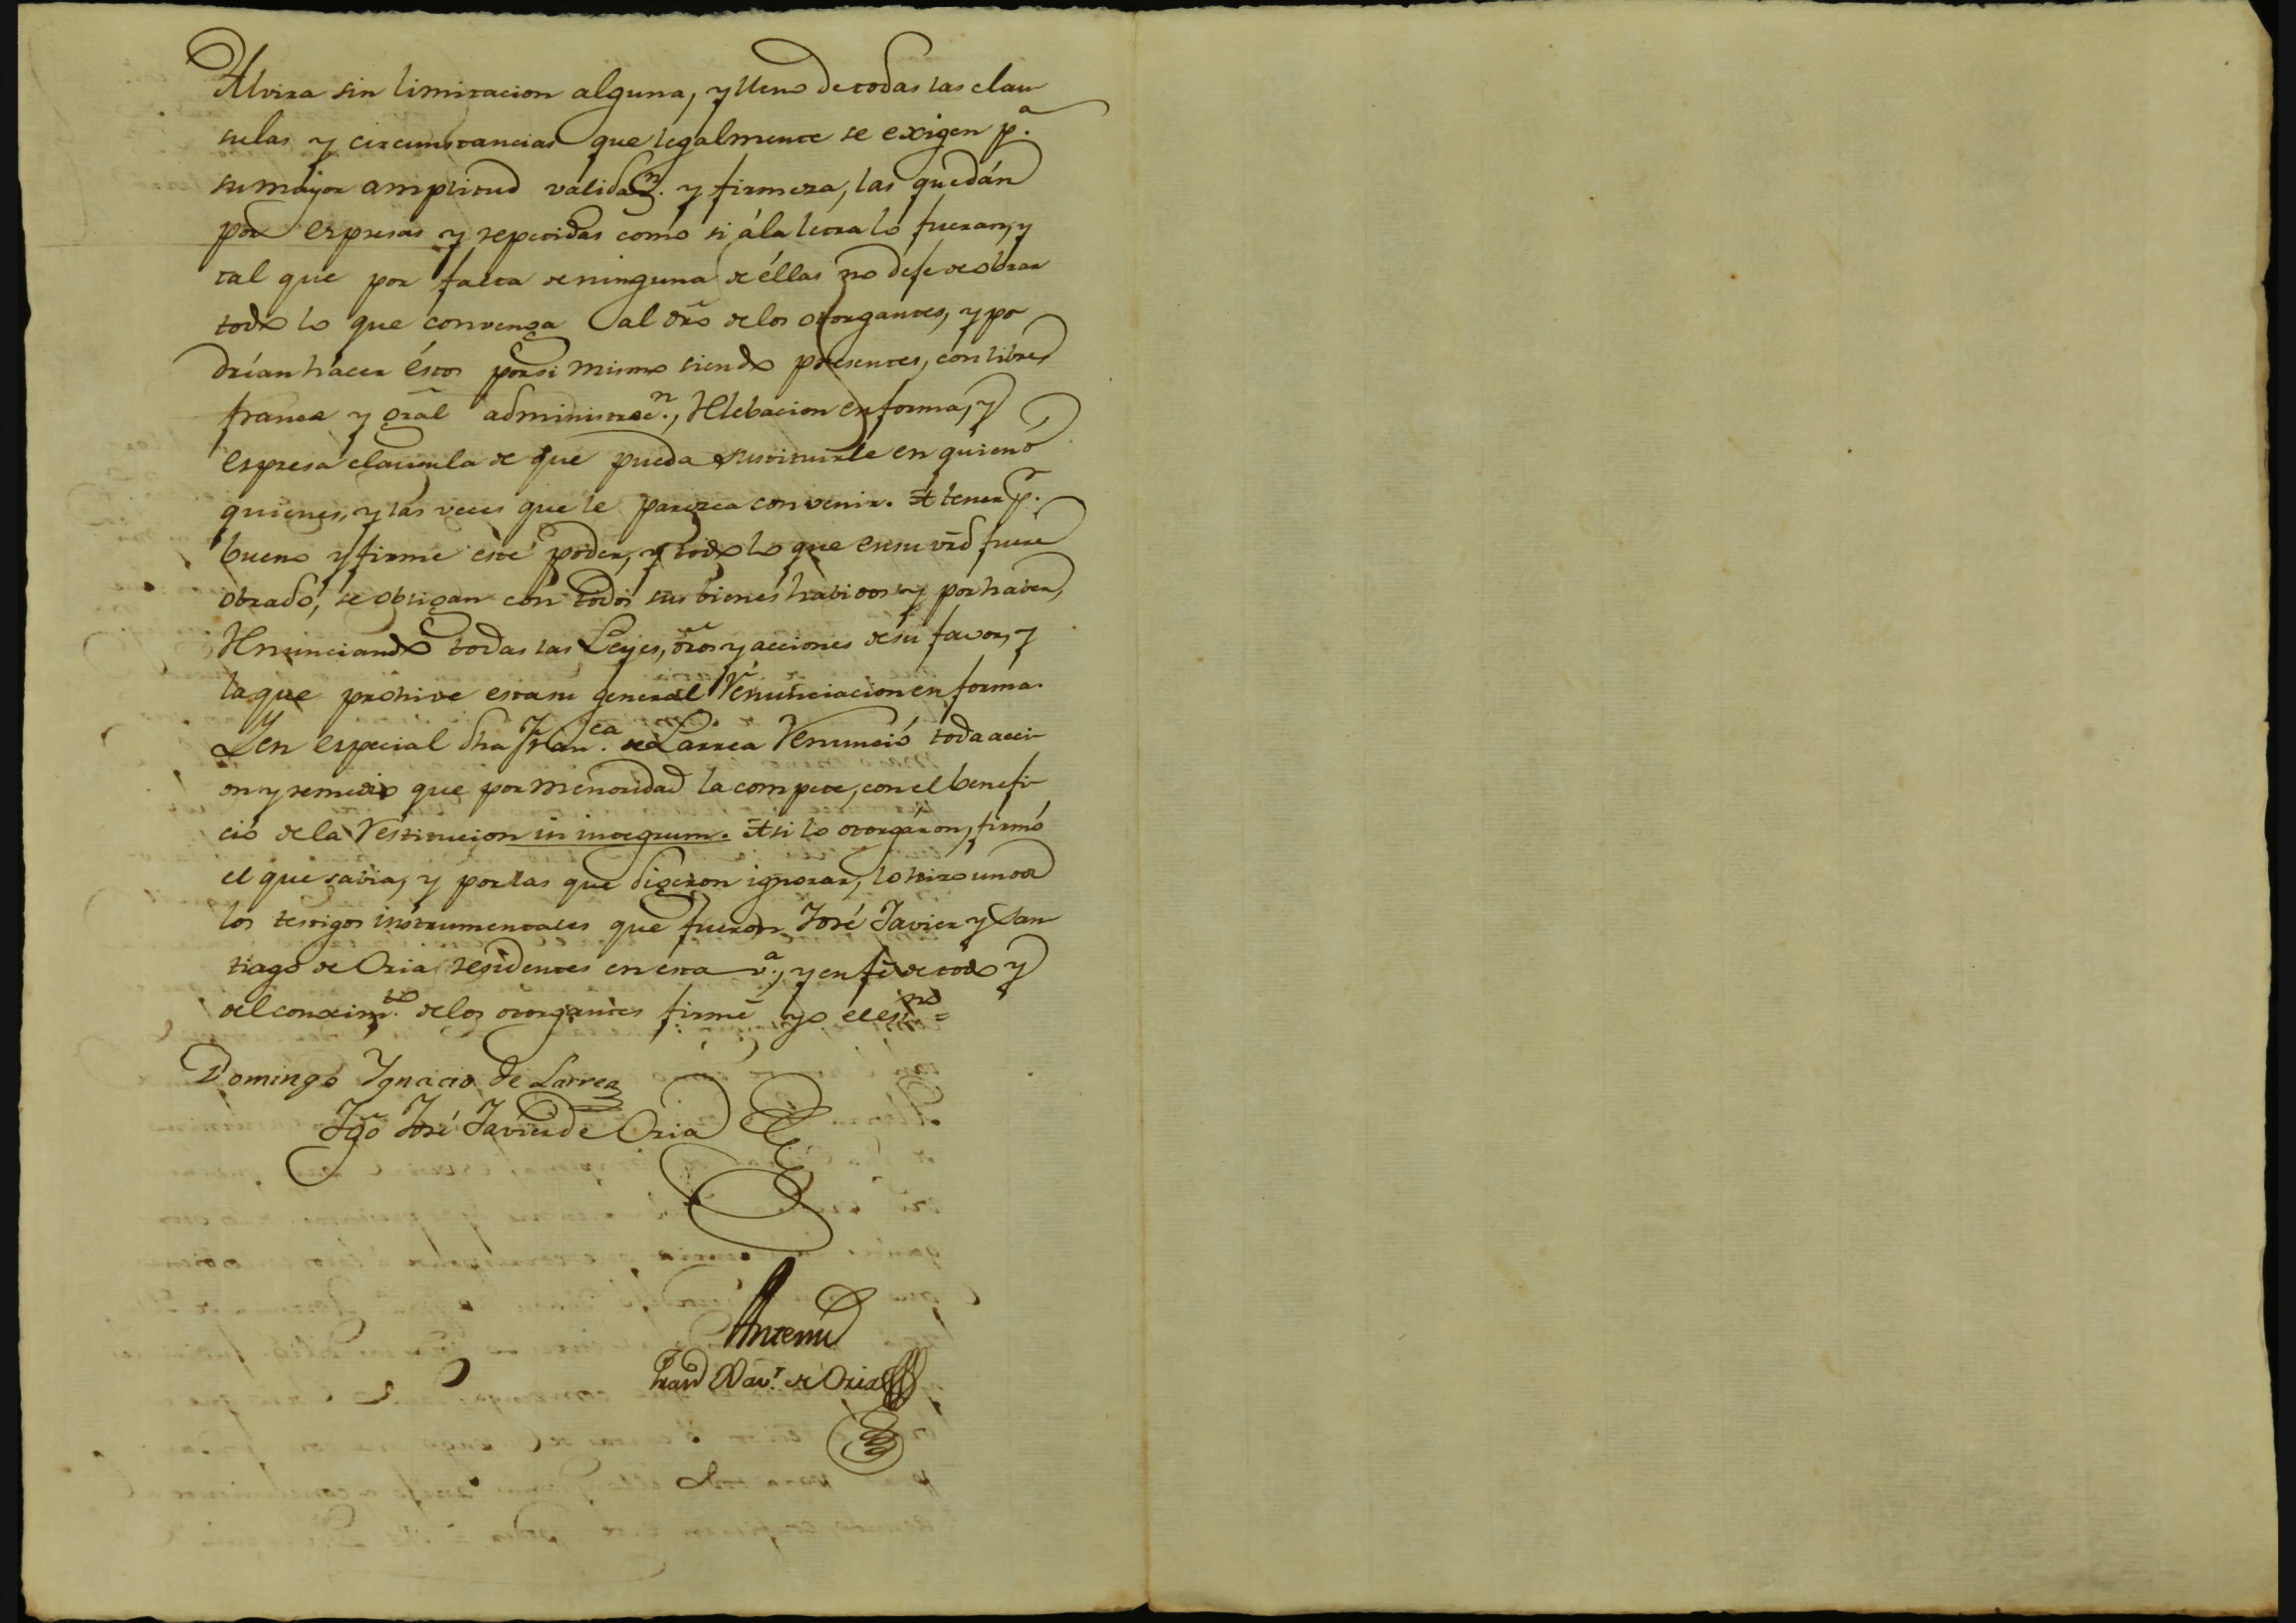 Alvira sin limitacion alguna, y lleno de todas las clau
sulas y circunstancias que legalmente se exigen p.ª
su mayor amplitud validac.n y firmeza, las quedán
por expresas y repetidas como si á la letra lo fueran, y
tal que por falta de ninguna de éllas no defe de obrar
todo lo que convenga al dro de los otorgantes, y po
drían hácer éstos por si mismo siendo presentes, con libre
franca y gral administrac.n, Relebacion en forma, y
expresa clausula de que pueda sustituirle en quien ó
quienes, y las veces que le parezca convenir. A tener p.r
bueno y firme este poder, y todo lo que en su vrd fuere
obrado, se obligan con todos sus bienes habidos y por haber,
Renunciando todas las Leyes, dros y acciones de su favor, y
la que prohive esta su general Renunciacion en forma.
Y en especial dha Fran.ca de Larrea Renunció toda acci-
on y remedio que por menoridad la compete, con el benefi-
cio de la Restitucion in integrum. Asi lo otorgáron, firmó
el que sabia, y por las que digeron ignorar, lo hizo uno de
los testigos instrumentales que fueron José Javier y San
tiago de Oria residentes en esta v.ª, y en fé de todo y
del conocim.to de los otorgantes firmé yo el es.no =
Domingo Ygnacio de Larrea
Tgo José Javier de Oria
Antemi
Xav.r de Oria